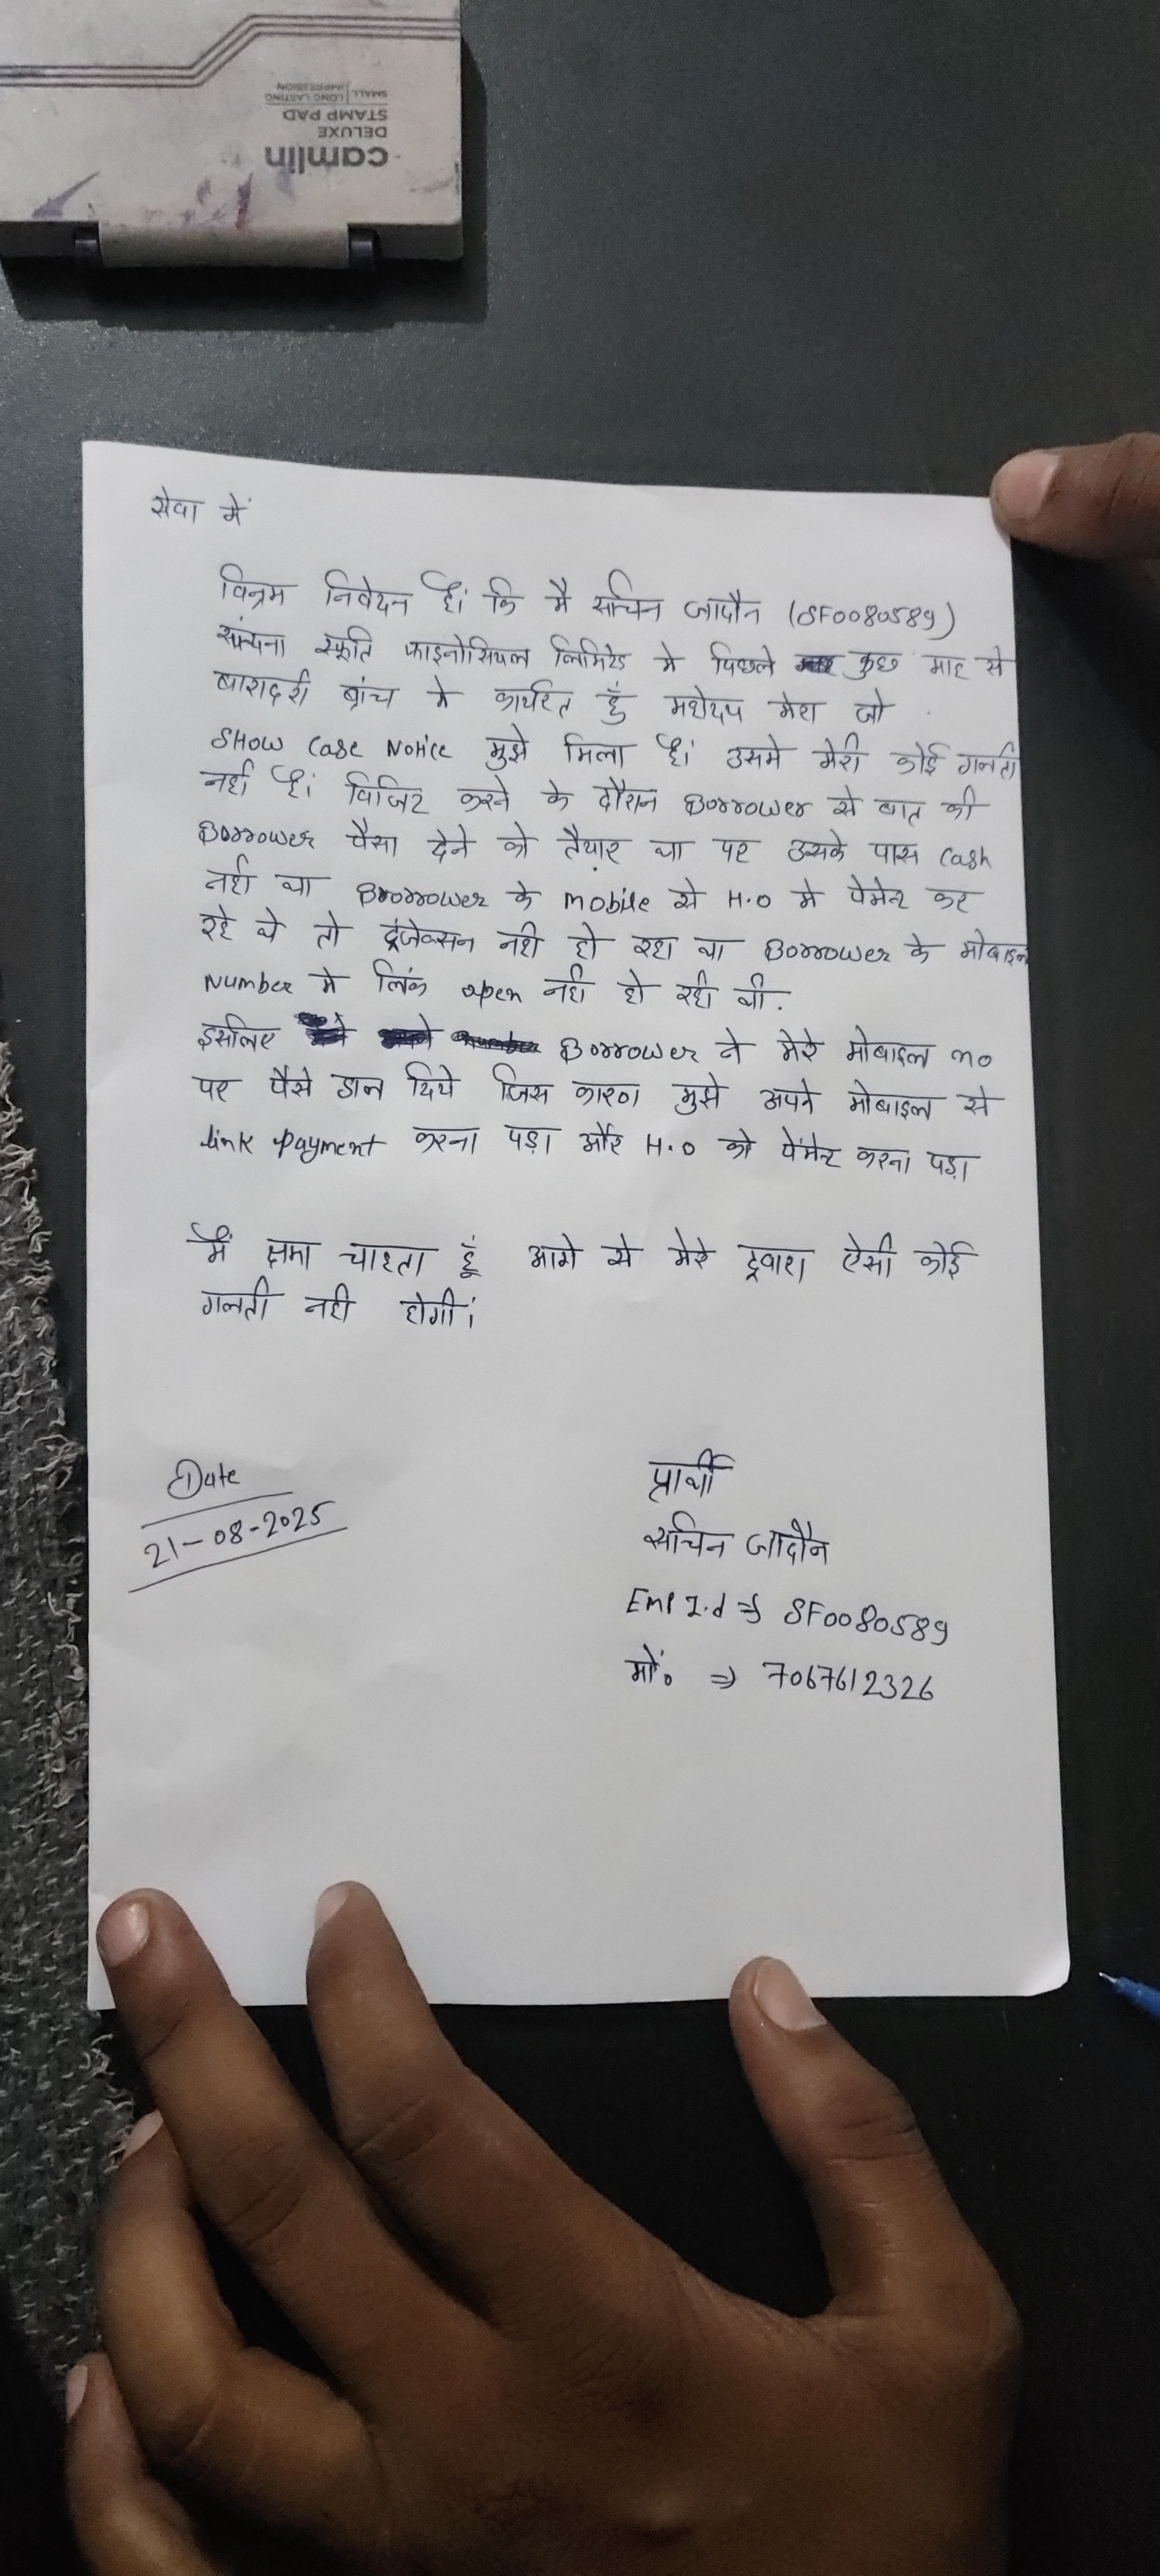 camlin
DELUXE
STAMP PAD
SMALL | LONG LASTING IMPRESSION
सेवा में
विनम्र निवेदन है। कि मै सचिन जादौन (SF0080589)
स्फूर्ति फाइनोसियल लिमिटेड मे पिछले कुछ माह से
बारादरी ब्रांच मे कार्यरत हूँ महोदय मेरा जो
SHOW Case Notice मुझे मिला है। उसमे मेरी कोई गलती
नही है। विजिट करने के दौरान Borrower से बात की
Borrower पैसा देने को तैयार था पर उसके पास Cash
नही था Brorrower के mobile से H.O मे पेमेन्ट कर
रहे थे तो ट्रंजेक्सन नही हो रहा था Borrower के मोबाइल
Number मे लिंक open नही हो रही थी.
इसलिए Borrower ने मेरे मोबाइल no
पर पैसे डाल दिये जिस कारण मुझे अपने मोबाइल से
link Payment करना पड़ा और H.O को पेंमेन्ट करना पड़ा
मैं क्षमा चाहता हूँ आगे से मेरे द्वारा ऐसी कोई
गलती नही होगी।
Date
21-08-2025
प्रार्थी
सचिन जादौन
Emp I.d ⇒ SF0080589
मों० ⇒ 7067612326